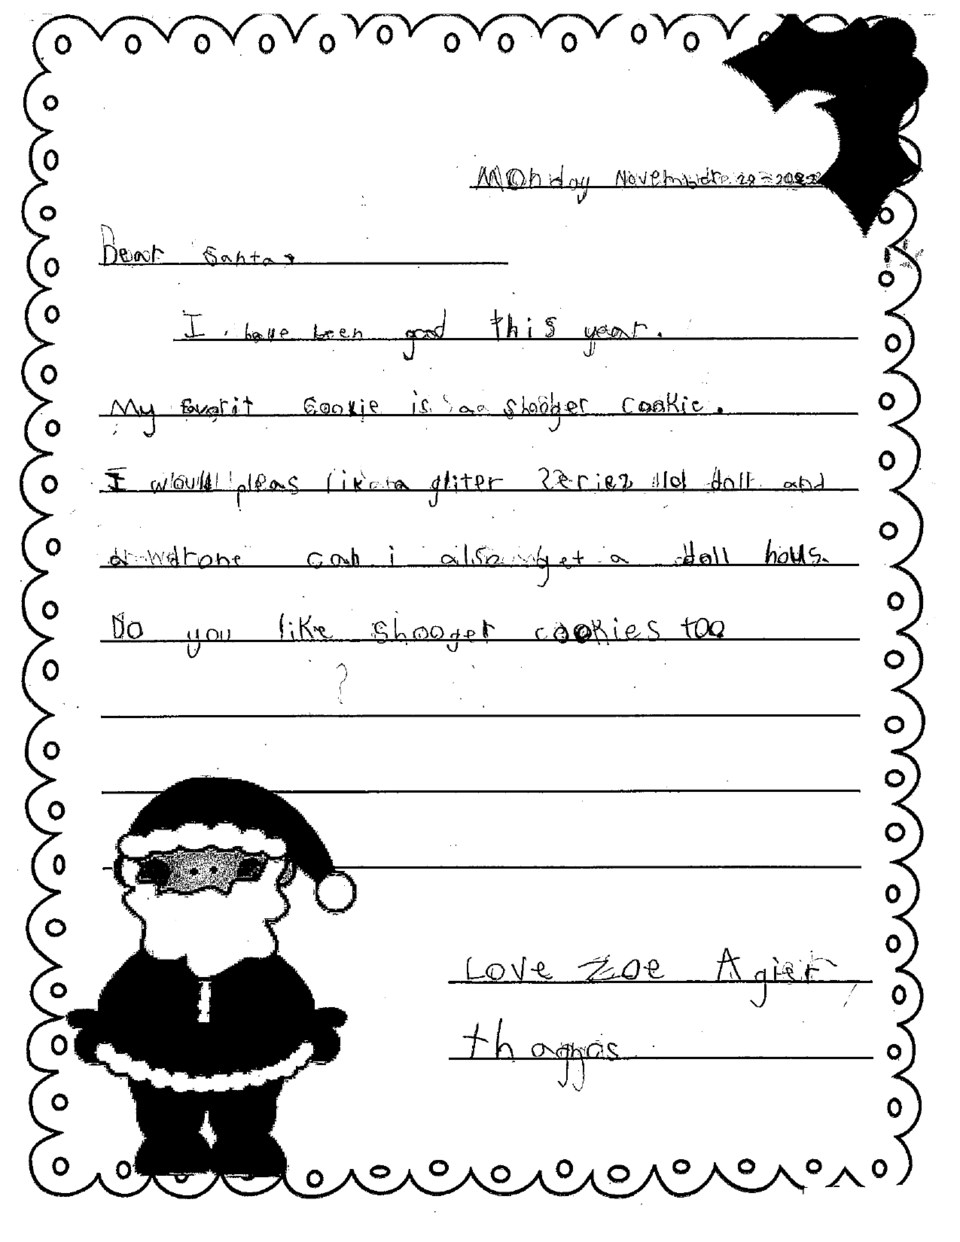 Monday November 28 2022
Dear Santa,
I have been good this year.
My favorit cookie is a shooger cookie.
I would pleas like a gliter zeriez lol doll and
a drone can i also get a doll hous.
Do you like shooger cookies too
?
Love Zoe Agier
thaggas